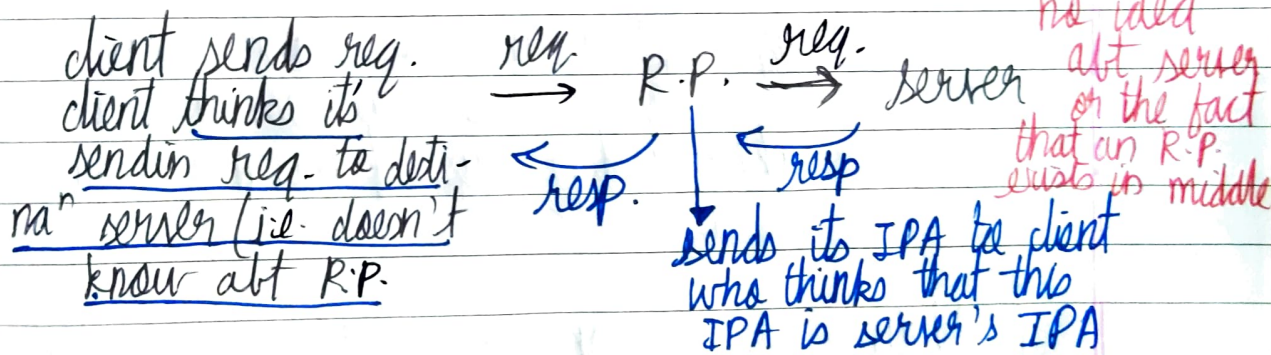 client sends req.
client thinks it's
sendin req. to desti-
naⁿ server (i.e. doesn't
know abt R.P.
req. → R.P. req. → server
resp. resp
sends its IPA to client
who thinks that this
IPA is server's IPA
no idea
abt server
or the fact
that an R.P.
exists in middle